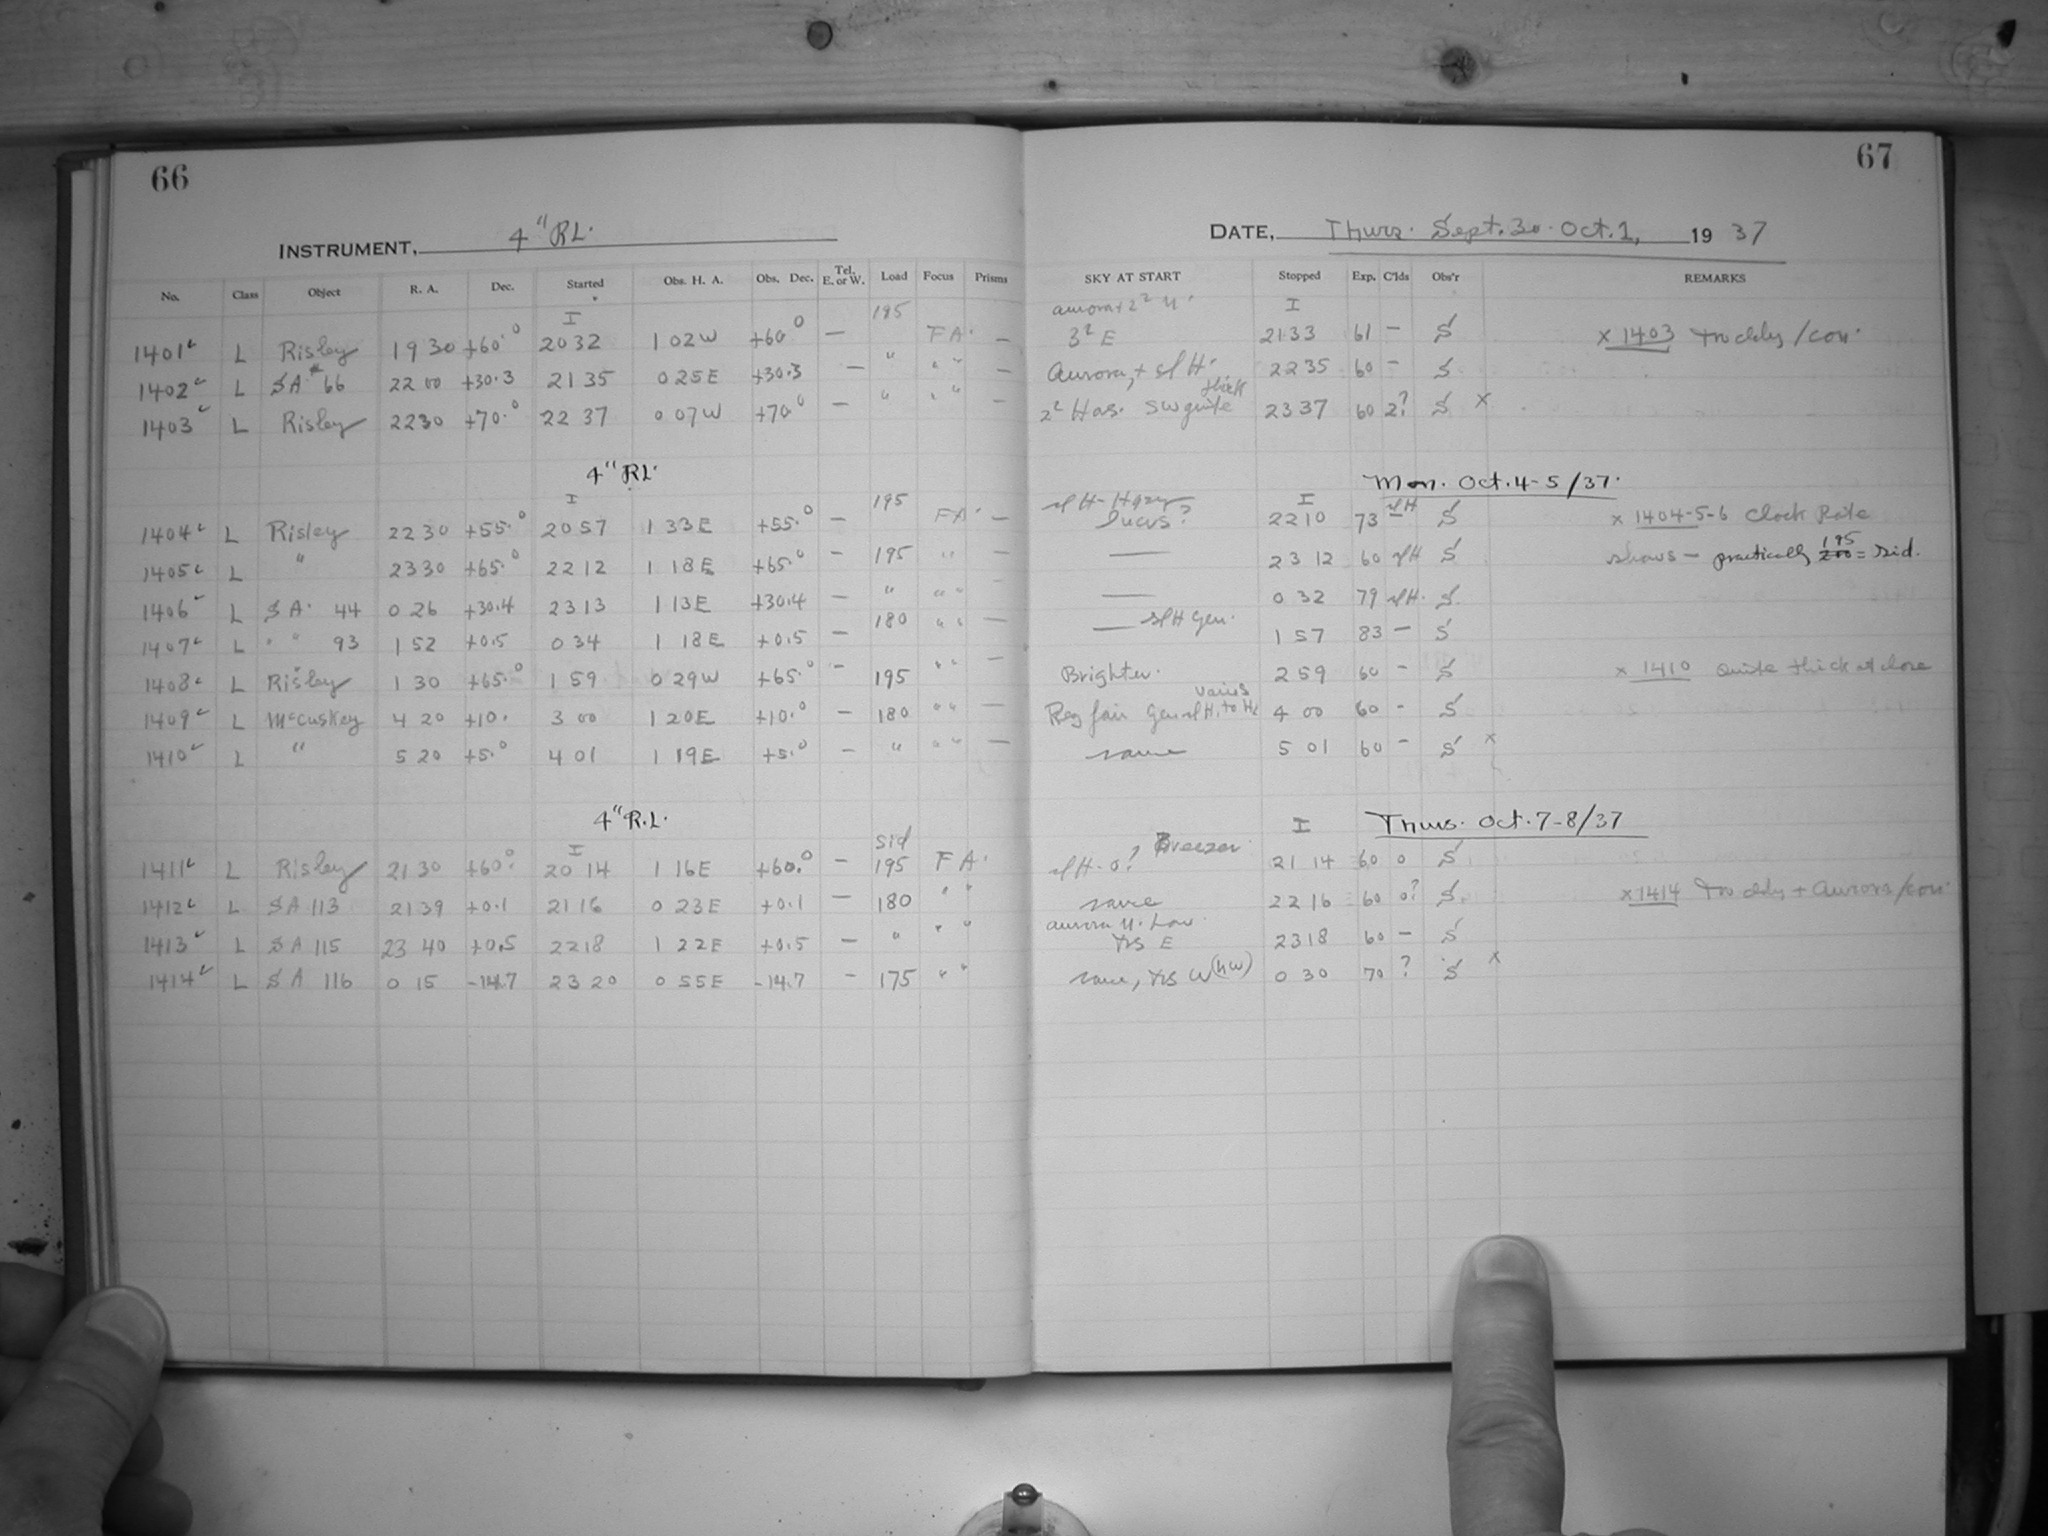 66
INSTRUMENT, 4" RL.
No. Class Object R. A. Dec. Started Obs. H. A. Obs. Dec. Tel. E. or W. Load Focus Prisms
I 195
1401 L Risley 19 30 +60.° 20 32 1 02W +60° — FA. —
1402 L SA* 66 22 00 +30.3 21 35 0 25E +30.3 — " " " —
1403 L Risley 2230 +70.° 22 37 0 07W +70° — " " " —
4" RL.
I 195
1404 L Risley 22 30 +55.° 20 57 1 33E +55.° — FA. —
1405 L " 23 30 +65.° 22 12 1 18E +65.° — 195 " —
1406 L SA. 44 0 26 +30.4 23 13 1 13E +30.4 — " " " —
1407 L " " 93 1 52 +0.5 0 34 1 18E +0.5 — 180 " " —
1408 L Risley 1 30 +65.° 1 59 0 29W +65.° — 195 " " —
1409 L McCuskey 4 20 +10. 3 00 1 20E +10.° — 180 " " —
1410 L " 5 20 +5.° 4 01 1 19E +5.° — " " " —
4" R.L.
I Sid
1411 L Risley 21 30 +60.° 20 14 1 16E +60.° — 195 FA.
1412 L SA 113 21 39 +0.1 21 16 0 23E +0.1 — 180 " "
1413 L SA 115 23 40 +0.5 22 18 1 22E +0.5 — " " "
1414 L SA 116 0 15 -14.7 23 20 0 55E -14.7 — 175 " "
67
DATE, Thurs. Sept. 30. Oct. 1, 1937
SKY AT START Stopped Exp. C'lds Obs'r REMARKS
I
3² E 21 33 61 — S x 1403
Aurora, + sl H. 22 35 60 — S
thick
2² Has. SW quite 23 37 60 2? S x
Mon. Oct. 4-5/37.
sl H - Hazy I sl H
22 10 73 — S x 1404-5-6 Clock Rate
— 23 12 60 sl H S shows — practically 195 200 = sid.
— 0 32 79 sl H. S
— sl H Gen. 1 57 83 — S
Brighter. 2 59 60 — S x 1410 Quite thick at close
varies
Reg fair Gen sl H, to H2 4 00 60 — S
same 5 01 60 — S x
I Thurs. Oct. 7-8/37
Breezer
sl H - 0? 21 14 60 0 S
same 22 16 60 0? S x 1414
aurora N. Low
E 23 18 60 — S
same, W (NW) 0 30 70 ? S x